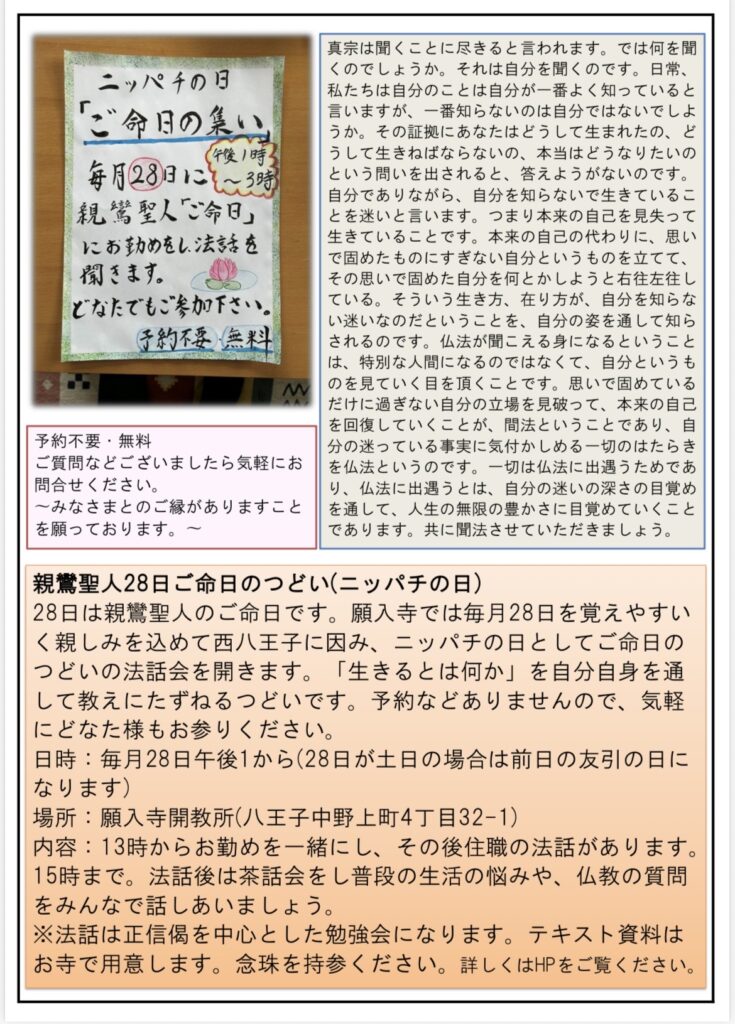 ニッパチの日
「ご命日の集い」
午後1時
～3時
毎月28日に
親鸞聖人「ご命日」
にお勤めをし、法話を
聞きます。
どなたでもご参加下さい。
予約不要・無料
真宗は聞くことに尽きると言われます。では何を聞
くのでしょうか。それは自分を聞くのです。日常、
私たちは自分のことは自分が一番よく知っていると
言いますが、一番知らないのは自分ではないでしょ
うか。その証拠にあなたはどうして生まれたの、ど
うして生きねばならないの、本当はどうなりたいの
という問いを出されると、答えようがないのです。
自分でありながら、自分を知らないで生きているこ
とを迷いと言います。つまり本来の自己を見失って
生きていることです。本来の自己の代わりに、思い
で固めたものにすぎない自分というものを立てて、
その思いで固めた自分を何とかしようと右往左往し
ている。そういう生き方、在り方が、自分を知らな
い迷いなのだということを、自分の姿を通して知ら
されるのです。仏法が聞こえる身になるということ
は、特別な人間になるのではなくて、自分というも
のを見ていく目を頂くことです。思いで固めている
だけに過ぎない自分の立場を見破って、本来の自己
を回復していくことが、間法ということであり、自
分の迷っている事実に気付かしめる一切のはたらき
を仏法というのです。一切は仏法に出遇うためであ
り、仏法に出遇うとは、自分の迷いの深さの目覚め
を通して、人生の無限の豊かさに目覚めていくこと
であります。共に聞法させていただきましょう。
予約不要・無料
ご質問などございましたら気軽にお
問合せください。
～みなさまとのご縁がありますこと
を願っております。～
親鸞聖人28日ご命日のつどい(ニッパチの日)
28日は親鸞聖人のご命日です。願入寺では毎月28日を覚えやすい
く親しみを込めて西八王子に因み、ニッパチの日としてご命日の
つどいの法話会を開きます。「生きるとは何か」を自分自身を通
して教えにたずねるつどいです。予約などありませんので、気軽
にどなた様もお参りください。
日時：毎月28日午後1から(28日が土日の場合は前日の友引の日に
なります)
場所：願入寺開教所(八王子中野上町4丁目32-1)
内容：13時からお勤めを一緒にし、その後住職の法話があります。
15時まで。法話後は茶話会をし普段の生活の悩みや、仏教の質問
をみんなで話しあいましょう。
※法話は正信偈を中心とした勉強会になります。テキスト資料は
お寺で用意します。念珠を持参ください。詳しくはHPをご覧ください。